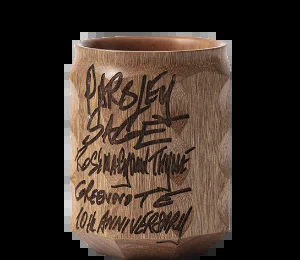 PARSLEY
SAGE
ROSEMARY AND THYME
GREENNOTE
10TH ANNIVERSARY